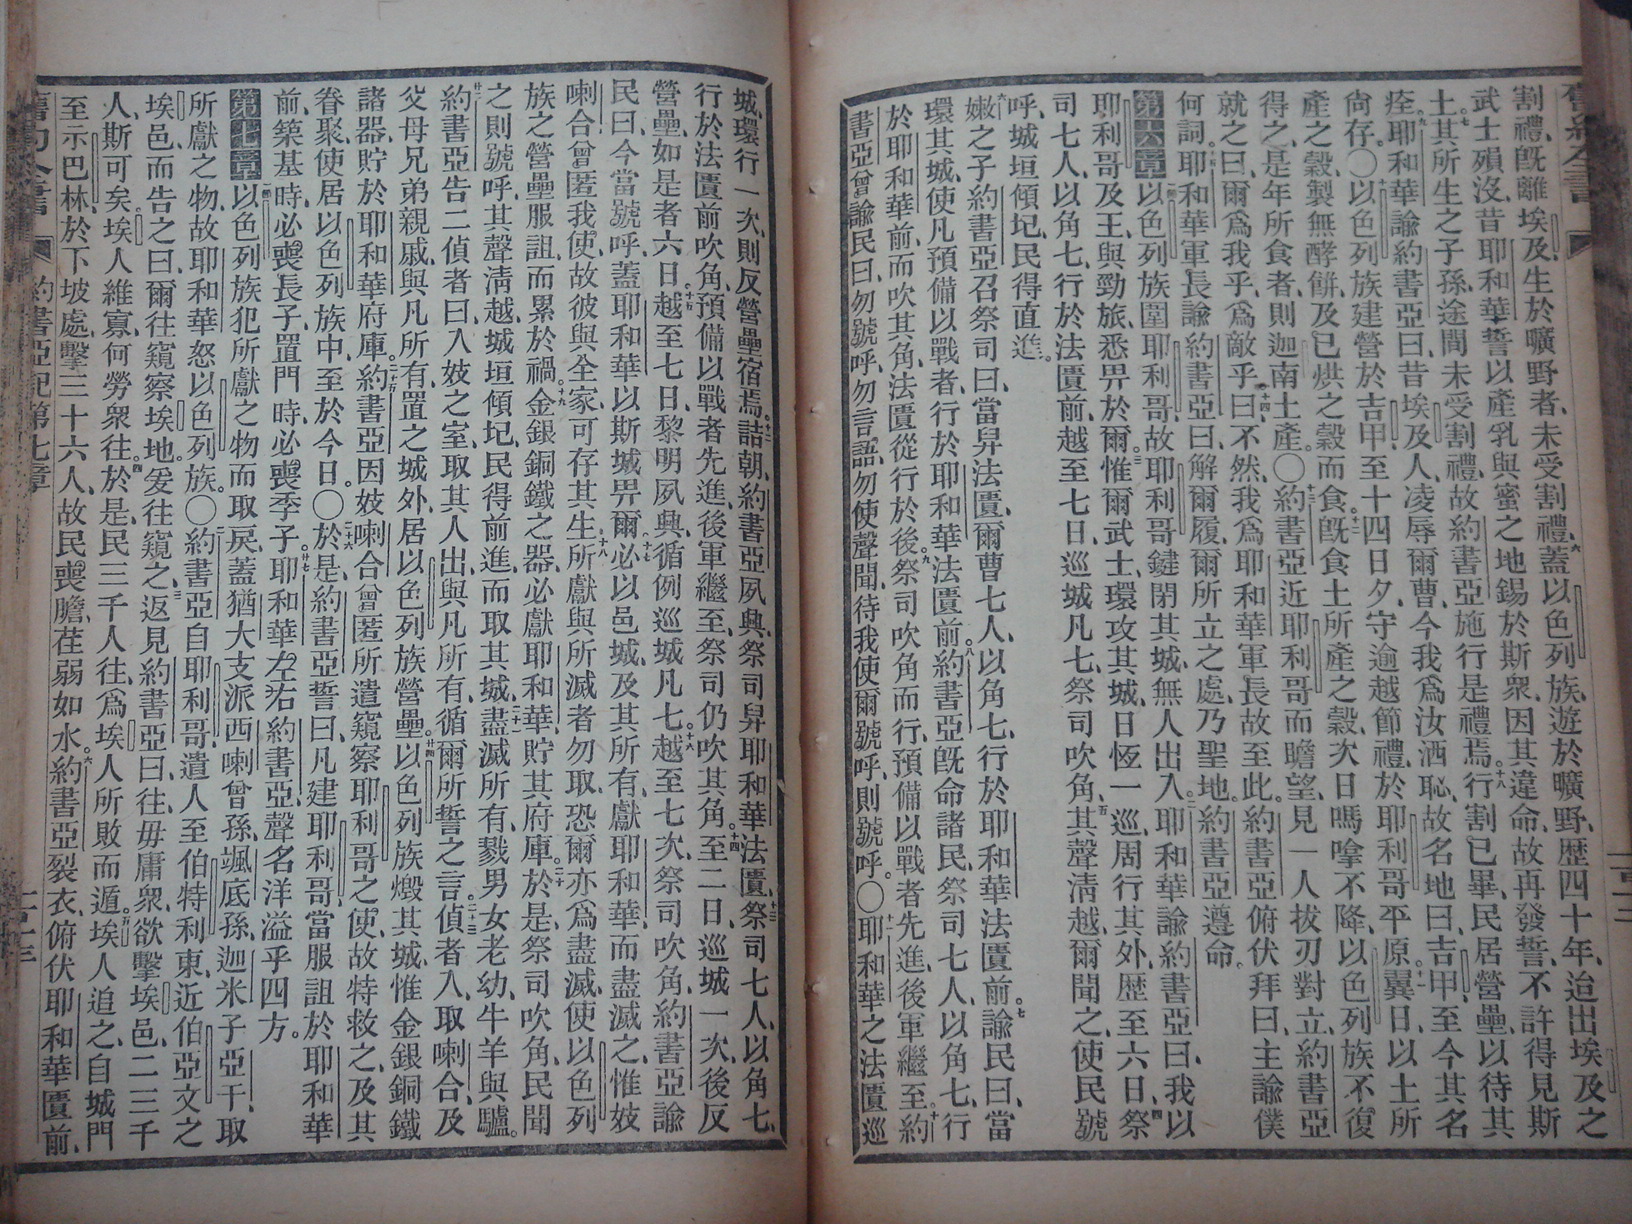 舊約全書
割禮、旣離埃及、生於曠野者、未受割禮、蓋以色列族、遊於曠野、歷四十年、迨出埃及之
武士殞沒、昔耶和華誓以產乳與蜜之地、錫於斯衆、因其違命、故再發誓、不許得見斯
土、其所生之子孫、途間未受割禮、故約書亞施行是禮焉、行割已畢、民居營壘、以待其
痊、耶和華諭約書亞曰、昔埃及人凌辱爾曹、今我爲汝洒恥、故名地曰吉甲、至今其名
尙存。〇以色列族建營於吉甲、至十四日夕、守逾越節禮、於耶利哥平原、翼日、以土所
產之穀、製無酵餅、及已烘之穀而食、旣食土所產之穀、次日嗎嗱不降、以色列族不復
得之、是年所食者、則迦南土產。〇約書亞近耶利哥而瞻望、見一人拔刃對立、約書亞
就之曰、爾爲我乎、爲敵乎、曰、不然、我爲耶和華軍長、故至此、約書亞俯伏拜曰、主諭僕
何詞、耶和華軍長諭約書亞曰、解爾履、爾所立之處、乃聖地、約書亞遵命。
第六章 以色列族圍耶利哥、故耶利哥鍵閉其城、無人出入、耶和華諭約書亞曰、我以
耶利哥及王、與勁旅、悉畀於爾。惟爾武士、環攻其城、日恆一巡、周行其外、歷至六日、祭
司七人、以角七、行於法匱前、越至七日、巡城凡七、祭司吹角、其聲淸越、爾聞之、使民號
呼、城垣傾圮、民得直進。
嫩之子約書亞召祭司曰、當舁法匱、爾曹七人、以角七、行於耶和華法匱前。諭民曰、當
環其城、使凡預備以戰者、行於耶和華法匱前。約書亞旣命諸民、祭司七人、以角七、行
於耶和華前、而吹其角、法匱從行於後。祭司吹角而行、預備以戰者先進、後軍繼至。約
書亞曾諭民曰、勿號呼、勿言語、勿使聲聞、待我使爾號呼、則號呼。〇耶和華之法匱巡
城、環行一次、則反營壘宿焉。詰朝、約書亞夙興、祭司舁耶和華法匱、祭司七人、以角七、
行於法匱前吹角、預備以戰者先進、後軍繼至、祭司仍吹其角。至二日、巡城一次、後反
營壘、如是者六日。越至七日、黎明夙興、循例巡城凡七。越至七次、祭司吹角、約書亞諭
民曰、今當號呼、蓋耶和華以斯城畀爾。必以邑城及其所有、獻耶和華、而盡滅之、惟妓
喇合曾匿我使、故彼與全家、可存其生。所獻與所滅者勿取、恐爾亦爲盡滅、使以色列
族之營壘服詛、而累於禍。金銀銅鐵之器、必獻耶和華、貯其府庫。於是祭司吹角、民聞
之則號呼、其聲淸越、城垣傾圮、民得前進、而取其城、盡滅所有、戮男女老幼、牛羊與驢。
約書亞告二偵者曰、入妓之室、取其人出、與凡所有、循爾所誓之言。偵者入、取喇合、及
父母兄弟親戚、與凡所有、置之城外、居以色列族營壘。以色列族燬其城、惟金銀銅鐵
諸器、貯於耶和華府庫。約書亞因妓喇合曾匿所遣窺察耶利哥之使、故特救之、及其
眷聚、使居以色列族中、至於今日。〇於是約書亞誓曰、凡建耶利哥當服詛於耶和華
前、築基時、必喪長子、置門時、必喪季子。耶和華左右約書亞、聲名洋溢乎四方。
第七章 以色列族犯所獻之物而取戾、蓋猶大支派西喇曾孫、颯底孫、迦米子亞干、取
所獻之物、故耶和華怒以色列族。〇約書亞自耶利哥、遣人至伯特利東、近伯亞文之
埃邑、而告之曰、爾往窺察埃地。爰往窺之、返見約書亞曰、往毋庸衆、欲擊埃邑、二三千
人、斯可矣、埃人維寡、何勞衆往。於是民三千人往、爲埃人所敗而遁。埃人追之、自城門
至示巴林、於下坡處、擊三十六人、故民喪膽、荏弱如水。約書亞裂衣、俯伏耶和華匱前、
舊約全書 約書亞記第七章 二百十三